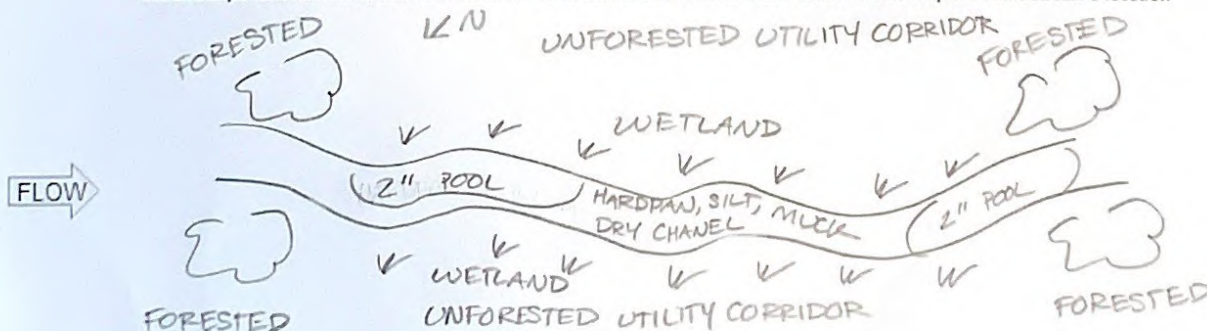 N
FORESTED
UNFORESTED UTILITY CORRIDOR
FORESTED
WETLAND
FLOW
2" POOL
HARDPAN, SILT, MUCK
DRY CHANEL
2" POOL
WETLAND
FORESTED
UNFORESTED UTILITY CORRIDOR
FORESTED